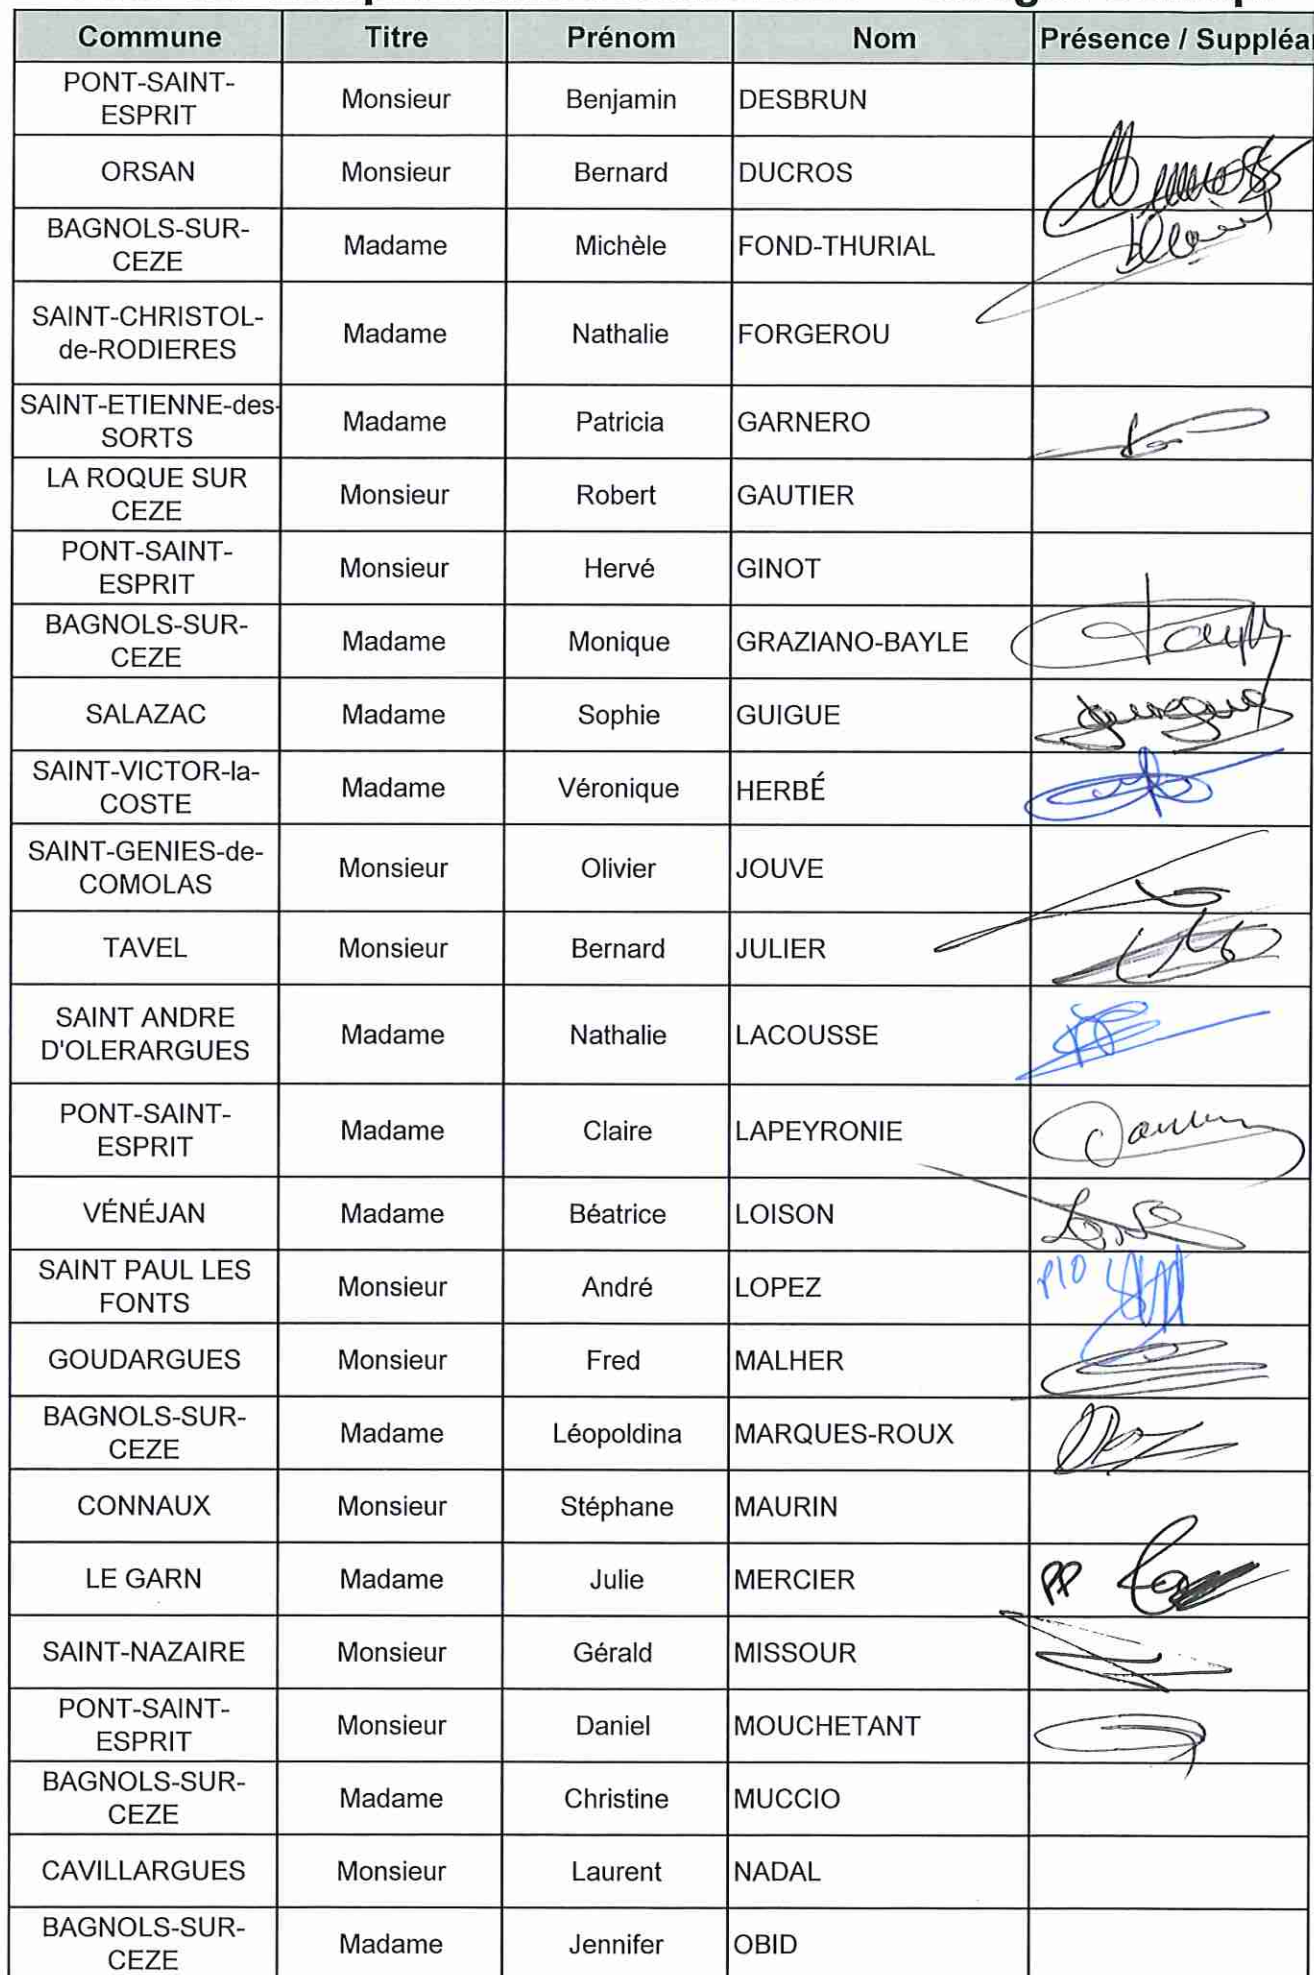 Commune Titre Prénom Nom Présence / Suppléa
PONT-SAINT-
ESPRIT Monsieur Benjamin DESBRUN
ORSAN Monsieur Bernard DUCROS
BAGNOLS-SUR-
CEZE Madame Michèle FOND-THURIAL
SAINT-CHRISTOL-
de-RODIERES Madame Nathalie FORGEROU
SAINT-ETIENNE-des-
SORTS Madame Patricia GARNERO
LA ROQUE SUR
CEZE Monsieur Robert GAUTIER
PONT-SAINT-
ESPRIT Monsieur Hervé GINOT
BAGNOLS-SUR-
CEZE Madame Monique GRAZIANO-BAYLE
SALAZAC Madame Sophie GUIGUE
SAINT-VICTOR-la-
COSTE Madame Véronique HERBÉ
SAINT-GENIES-de-
COMOLAS Monsieur Olivier JOUVE
TAVEL Monsieur Bernard JULIER
SAINT ANDRE
D'OLERARGUES Madame Nathalie LACOUSSE
PONT-SAINT-
ESPRIT Madame Claire LAPEYRONIE
VÉNÉJAN Madame Béatrice LOISON
SAINT PAUL LES
FONTS Monsieur André LOPEZ P/O
GOUDARGUES Monsieur Fred MALHER
BAGNOLS-SUR-
CEZE Madame Léopoldina MARQUES-ROUX
CONNAUX Monsieur Stéphane MAURIN
LE GARN Madame Julie MERCIER PP
SAINT-NAZAIRE Monsieur Gérald MISSOUR
PONT-SAINT-
ESPRIT Monsieur Daniel MOUCHETANT
BAGNOLS-SUR-
CEZE Madame Christine MUCCIO
CAVILLARGUES Monsieur Laurent NADAL
BAGNOLS-SUR-
CEZE Madame Jennifer OBID